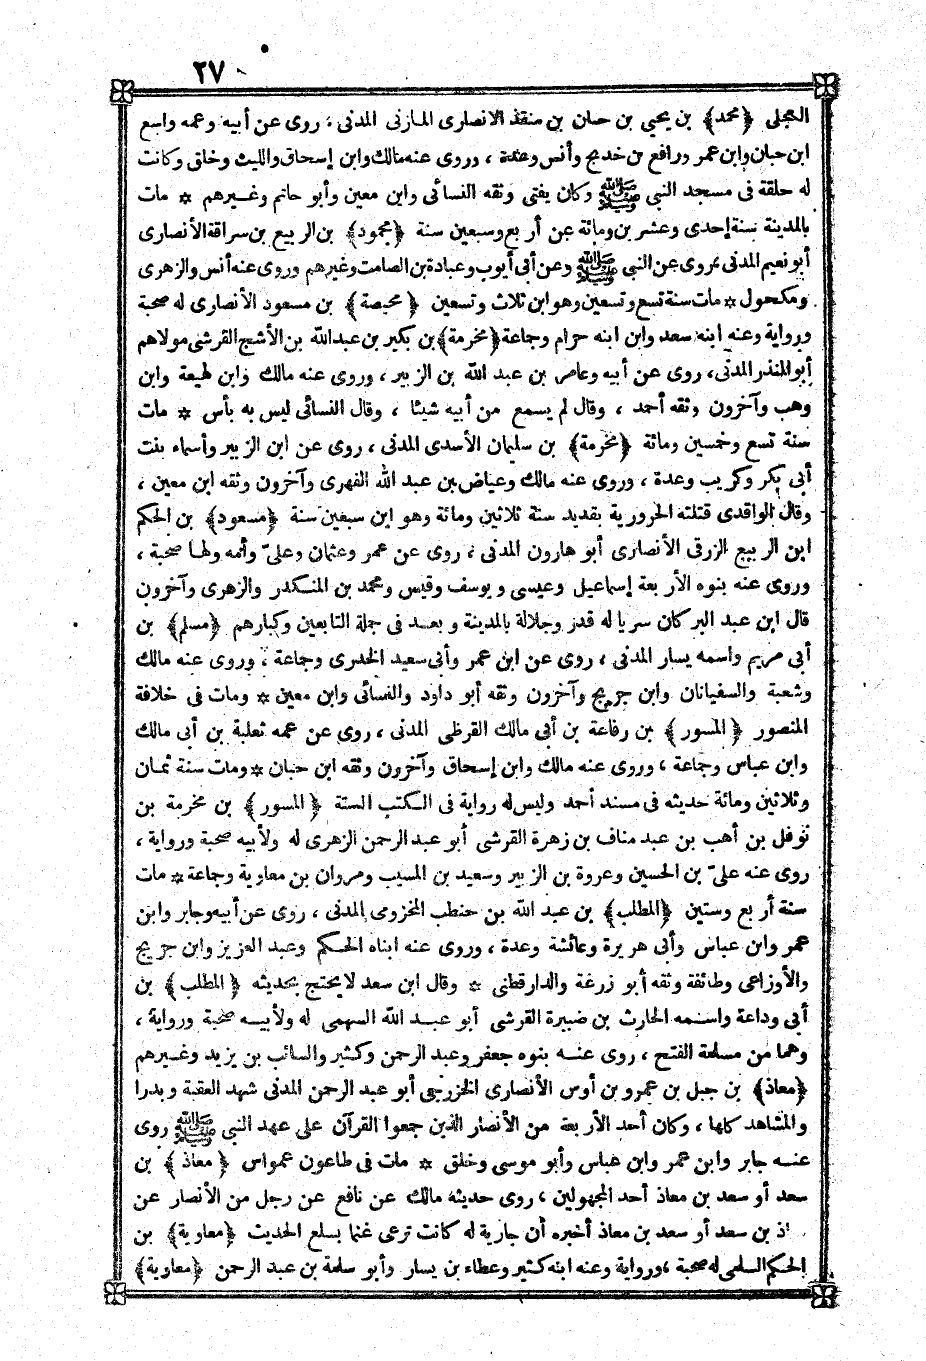 ٢٧
العجلى ﴿محمد﴾ بن يحيى بن حسان بن منقذ الانصارى المازنى المدنى ، روى عن أبيه وعمه واسع
ابن حبان وابن عمر ورافع بن خديج وأنس وعدة ، وروى عنه مالك وابن إسحاق والليث وخلق وكانت
له حلقة فى مسجد النبى ﷺ وكان يفتى وثقه النسائى وابن معين وأبو حاتم وغيرهم * مات
بالمدينة سنة إحدى وعشرين ومائة عن أربع وسبعين سنة ﴿محمود﴾ بن الربيع بن سراقة الأنصارى
أبو نعيم المدنى روى عن النبى ﷺ وعن أبى أيوب وعبادة بن الصامت وغيرهم وروى عنه أنس والزهرى
ومكحول * مات سنة تسع وتسعين وهو ابن ثلاث وتسعين ﴿محيصة﴾ بن مسعود الأنصارى له صحبة
ورواية وعنه ابنه سعد وابن ابنه حرام وجماعة ﴿مخرمة﴾ بن بكير بن عبد الله بن الأشج القرشى مولاهم
أبو المنذر المدنى، روى عن أبيه وعامر بن عبد الله بن الزبير ، وروى عنه مالك وابن لهيعة وابن
وهب وآخرون وثقه أحمد ، وقال لم يسمع من أبيه شيئا ، وقال النسائى ليس به بأس * مات
سنة تسع وخمسين ومائة ﴿مخرمة﴾ بن سليمان الأسدى المدنى ، روى عن ابن الزبير وأسماء بنت
أبى بكر وكريب وعدة ، وروى عنه مالك وعياض بن عبد الله الفهرى وآخرون وثقه ابن معين ،
وقال الواقدى قتلته الحرورية بقديد سنة ثلاثين ومائة وهو ابن سبعين سنة ﴿مسعود﴾ بن الحكم
ابن الربيع الزرقى الأنصارى أبو هارون المدنى ، روى عن عمر وعثمان وعلىّ وأمه ولها صحبة ،
وروى عنه بنوه الأربعة إسماعيل وعيسى ويوسف وقيس ومحمد بن المنكدر والزهرى وآخرون
قال ابن عبد البر كان سريا له قدر وجلالة بالمدينة ويعد فى جملة التابعين وكبارهم ﴿مسلم﴾ بن
أبى مريم واسمه يسار المدنى ، روى عن ابن عمر وأبى سعيد الخدرى وجماعة ، وروى عنه مالك
وشعبة والسفيانان وابن جريج وآخرون وثقه أبو داود والنسائى وابن معين * ومات فى خلافة
المنصور ﴿المسور﴾ بن رفاعة بن أبى مالك القرظى المدنى ، روى عن عمه ثعلبة بن أبى مالك
وابن عباس وجماعة ، وروى عنه مالك وابن إسحاق وآخرون وثقه ابن حبان * ومات سنة ثمان
وثلاثين ومائة حديثه فى مسند أحمد وليس له رواية فى الكتب الستة ﴿المسور﴾ بن مخرمة بن
نوفل بن أهب بن عبد مناف بن زهرة القرشى أبو عبد الرحمن الزهرى له ولأبيه صحبة ورواية ،
روى عنه علىّ بن الحسين وعروة بن الزبير وسعيد بن المسيب ومروان بن معاوية وجماعة * مات
سنة أربع وستين ﴿المطلب﴾ بن عبد الله بن حنطب المخزومى المدنى ، روى عن أبيه وجابر وابن
عمر وابن عباس وأبى هريرة وعائشة وعدة ، وروى عنه ابناه الحكم وعبد العزيز وابن جريج
والأوزاعى وطائفة وثقه أبو زرعة والدارقطنى * وقال ابن سعد لا يحتج بحديثه ﴿المطلب﴾ بن
أبى وداعة واسمه الحارث بن ضبيرة القرشى أبو عبد الله السهمى له ولأبيه صحبة ورواية ،
وهما من مسلمة الفتح ، روى عنه بنوه جعفر وعبد الرحمن وكثير والسائب بن يزيد وغيرهم
﴿معاذ﴾ بن جبل بن عمرو بن أوس الأنصارى الخزرجى أبو عبد الرحمن المدنى شهد العقبة وبدرا
والمشاهد كلها ، وكان أحد الأربعة من الأنصار الذين جمعوا القرآن على عهد النبى ﷺ روى
عنه جابر وابن عمر وابن عباس وأبو موسى وخلق * مات فى طاعون عمواس ﴿معاذ﴾ بن
سعد أو سعد بن معاذ أحد المجهولين ، روى حديثه مالك عن نافع عن رجل من الأنصار عن
اذ بن سعد أو سعد بن معاذ أخبره أن جارية له كانت ترعى غنما بسلع الحديث ﴿معاوية﴾ بن
الحكم السلمى له صحبة ، ورواية وعنه ابنه كثير وعطاء بن يسار وأبو سلمة بن عبد الرحمن ﴿معاوية﴾